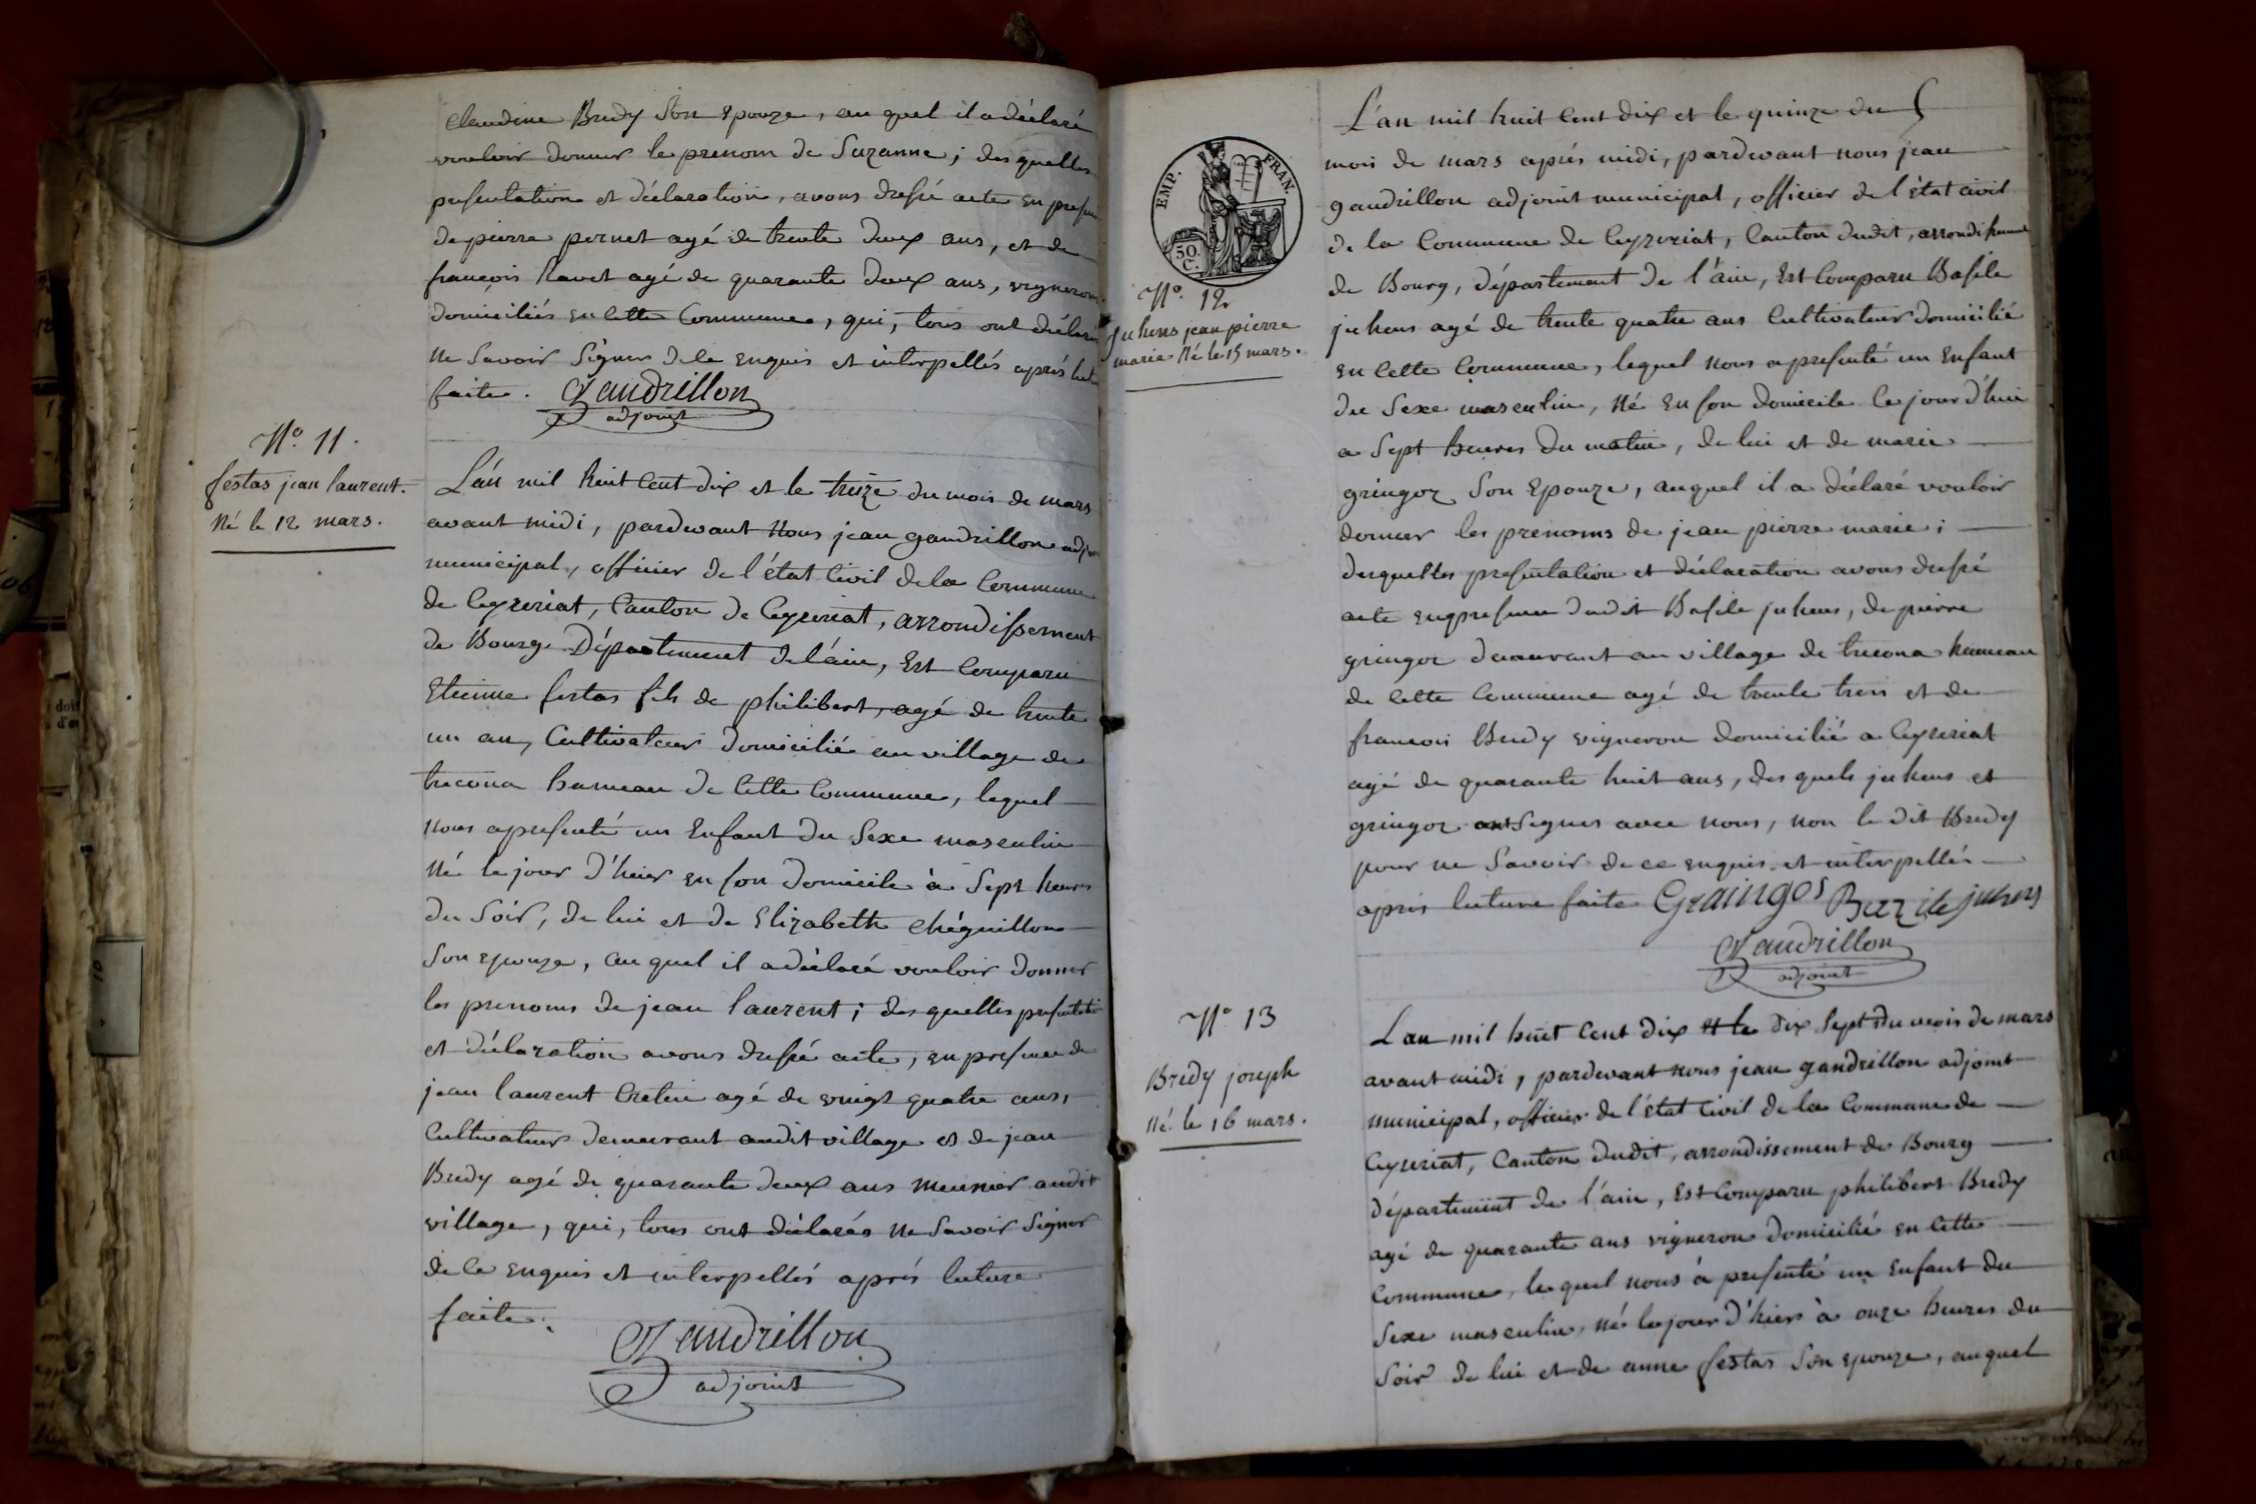 claudine Bredy Son Epouze, au quel il a déclaré
vouloir donner le prenom de Suzanne; des quelles
presentation et déclaration, avons dressé acte en presen
de pierre pernet agé de trente deux ans, et de
françois ravet agé de quarante deux ans, vignerons
domiciliés en cette Commune, qui, tous ont déclaré
ne Savoir Signer de ce enquis et interpellés aprés lect
faite. Gandrillon
adjoint
N° 11.
festas jean laurent.
Né le 12 mars.
L'án mil huit Cent dix et le treize du mois de mars
avant midi, pardevant Nous jean gandrillon adjoi
municipal, officier de l'état Civil de la Commune
de Ceyzeriat, Canton de Ceyzeriat, arrondissement
de Bourg Département de l'áin, Est Comparu
Etienne festas fils de philibert, agé de trente
un an, Cultivateur domicilié au village de
trecona hameau de Cette Commune, lequel
nous a presenté un Enfant du Sexe masculin
Né le jour d'hier en son domicile à Sept heures
du Soir, de lui et de Elizabeth Chéguillon
Son epouze, au quel il a déclaré vouloir donner
les prenoms de jean laurent; des quelles presentati
et déclaration avons dressé acte, en presence de
jean laurent Cretin agé de vingt quatre ans,
Cultivateur demeurant audit village et de jean
Bredy agé de quarante deux ans meunier audit
village, qui, tous ont déclarés ne Savoir Signer
de ce enquis et interpellés aprés lecture
faite.
Gandrillon
adjoint
EMP. FRAN.
50.
C.
N° 12
juhens jean pierre
marie Né le 15 mars.
L'án mil huit Cent dix et le quinze du
mois de mars aprés midi, pardevant nous jean
gandrillon adjoint municipal, officier de l'état civil
de la Commune de Ceyzeriat, Canton dudit, arrondissement
de Bourg, département de l'áin, Est Comparu Basile
juhens agé de trente quatre ans Cultivateur domicilié
en Cette Commune, lequel nous a presenté un Enfant
du Sexe masculin, Né en son domicile Ce jour d'hui
a Sept heures du matin, de lui et de marie
gringoz Son Epouze, auquel il a déclaré vouloir
donner les prenoms de jean pierre marie;
desquelles presentation et déclaration avons dressé
acte en presence dudit Basile juhens, de pierre
gringoz demeurant au village de trecona hameau
de Cette Commune agé de trente trois et de
francois Bredy vigneron domicilié a Ceyzeriat
agé de quarante huit ans, des quels juhens et
gringoz ont Signes avec nous, non le dit Bredy
pour ne Savoir de ce enquis et interpellés
aprés lecture faite Graingos Bazile juhens
Gandrillon
adjoint
N° 13
Bredy joseph
Né le 16 mars.
L'an mil huit Cent dix et le dix Sept du mois de mars
avant midi, pardevant nous jean gandrillon adjoint
municipal, officier de l'état Civil de la Commune de
Ceyzeriat, Canton dudit, arrondissement de Bourg
département de l'áin, Est Comparu philibert Bredy
agé de quarante ans vigneron domicilié en Cette
Commune, lequel nous à presenté un Enfant du
Sexe masculin, Né le jour d'hier à onze heures du
Soir de lui et de anne festas Son epouze, auquel